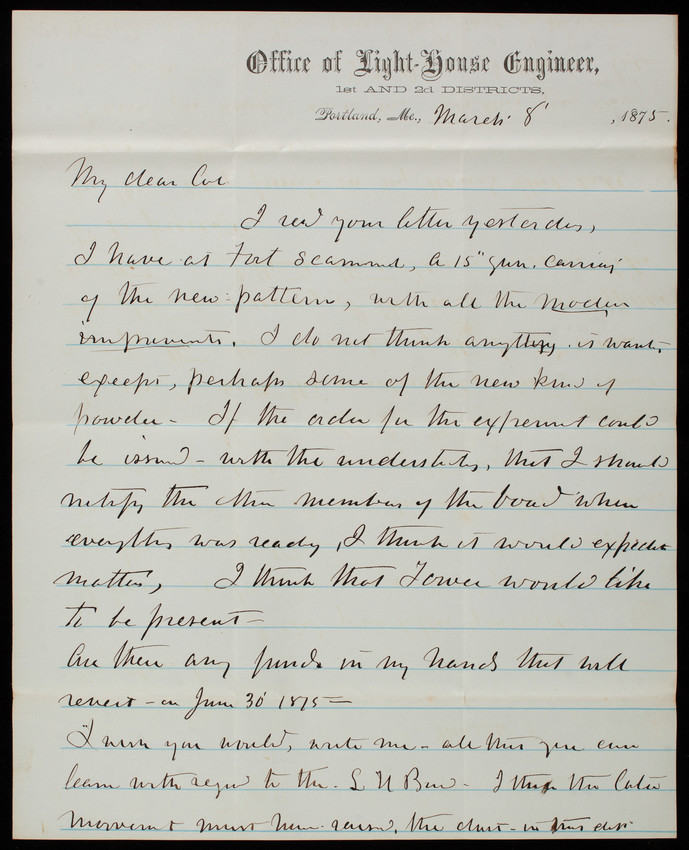 Office of Light-House Engineer,
1st AND 2d DISTRICTS,
Portland, Me., March 8 , 1875.
My dear Col
I recd your letter yesterday,
I have at Fort Scammel, a 15" gun, carriage
of the new pattern, with all the modern
improvements. I do not think anything is wanted
except, perhaps some of the new kind of
powder - If the order for the experiment could
be issued - with the understanding, that I should
notify the other members of the board when
everything was ready, I think it would expedite
matters, I think that Tower would like
to be present -
Are there any funds in my hands that will
revert - on June 30 1875 -
I wish you would, write me - all that you can
learn with regard to the - L H Board - I think the late
movement must have raised, the dust - in that